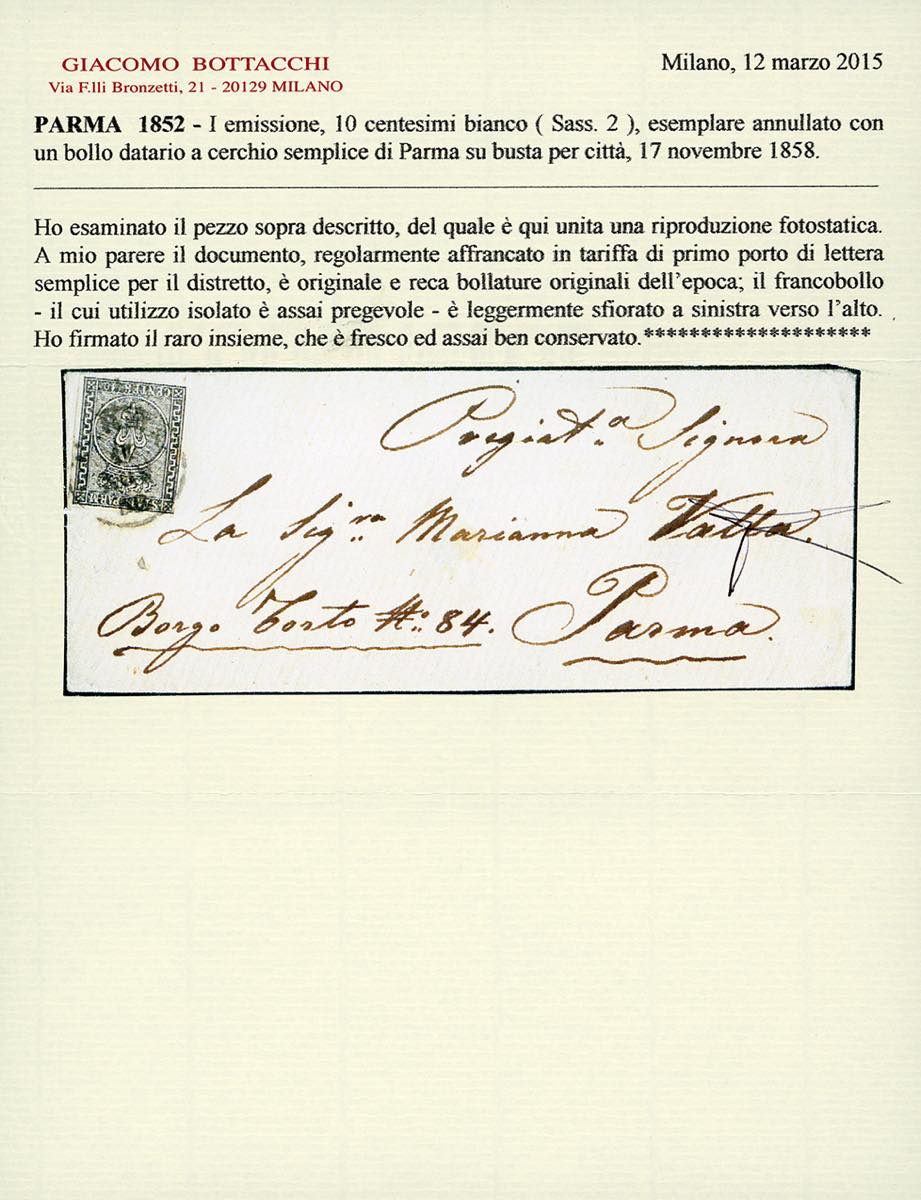 GIACOMO BOTTACCHI
Via F.lli Bronzetti, 21 - 20129 MILANO
Milano, 12 marzo 2015
PARMA 1852 - I emissione, 10 centesimi bianco ( Sass. 2 ), esemplare annullato con
un bollo datario a cerchio semplice di Parma su busta per città, 17 novembre 1858.
Ho esaminato il pezzo sopra descritto, del quale è qui unita una riproduzione fotostatica.
A mio parere il documento, regolarmente affrancato in tariffa di primo porto di lettera
semplice per il distretto, è originale e reca bollature originali dell'epoca; il francobollo
- il cui utilizzo isolato è assai pregevole - è leggermente sfiorato a sinistra verso l'alto.
Ho firmato il raro insieme, che è fresco ed assai ben conservato.********************
Pregiat.a Signora
La Sig.ra Marianna
Borgo Torto No: 84. Parma.